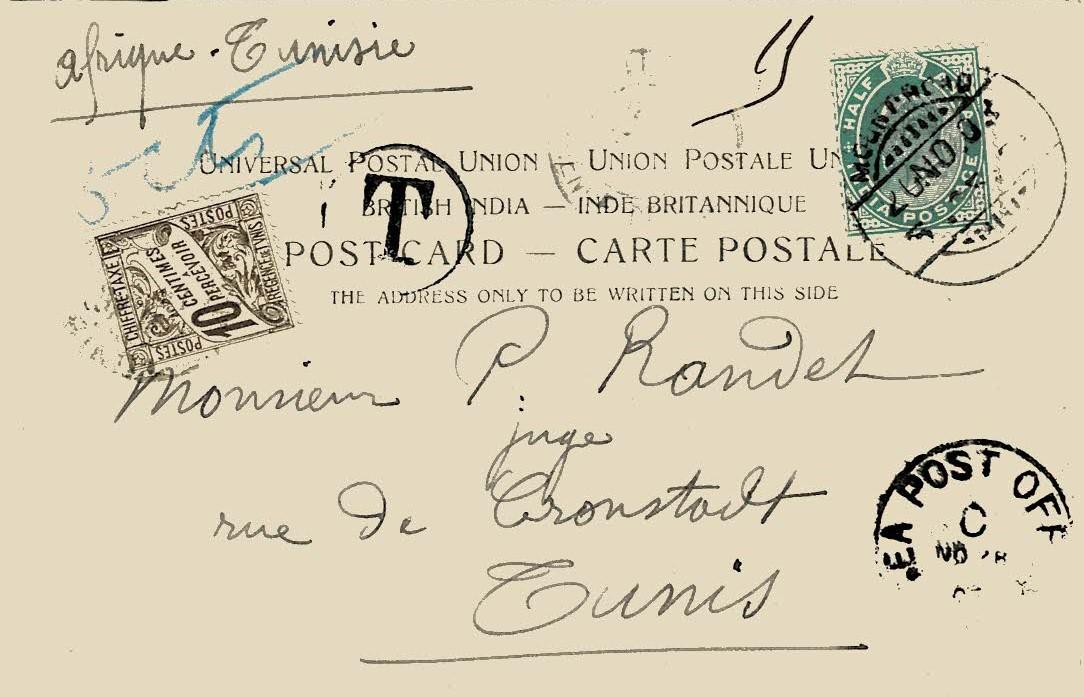 afrique - Tunisie
UNIVERSAL POSTAL UNION — UNION POSTALE UN
BRITISH INDIA — INDE BRITANNIQUE
POST CARD — CARTE POSTALE
THE ADDRESS ONLY TO BE WRITTEN ON THIS SIDE
T
HALF
POSTAGE
MOUNT-ROAD
POSTES
REGENCE DE TUNIS
CHIFFRE TAXE
10
CENTIMES
A PERCEVOIR
POSTES
Monsieur P. Randet
juge
rue de Cronstadt
Tunis
EA POST OFF
C
NO 28